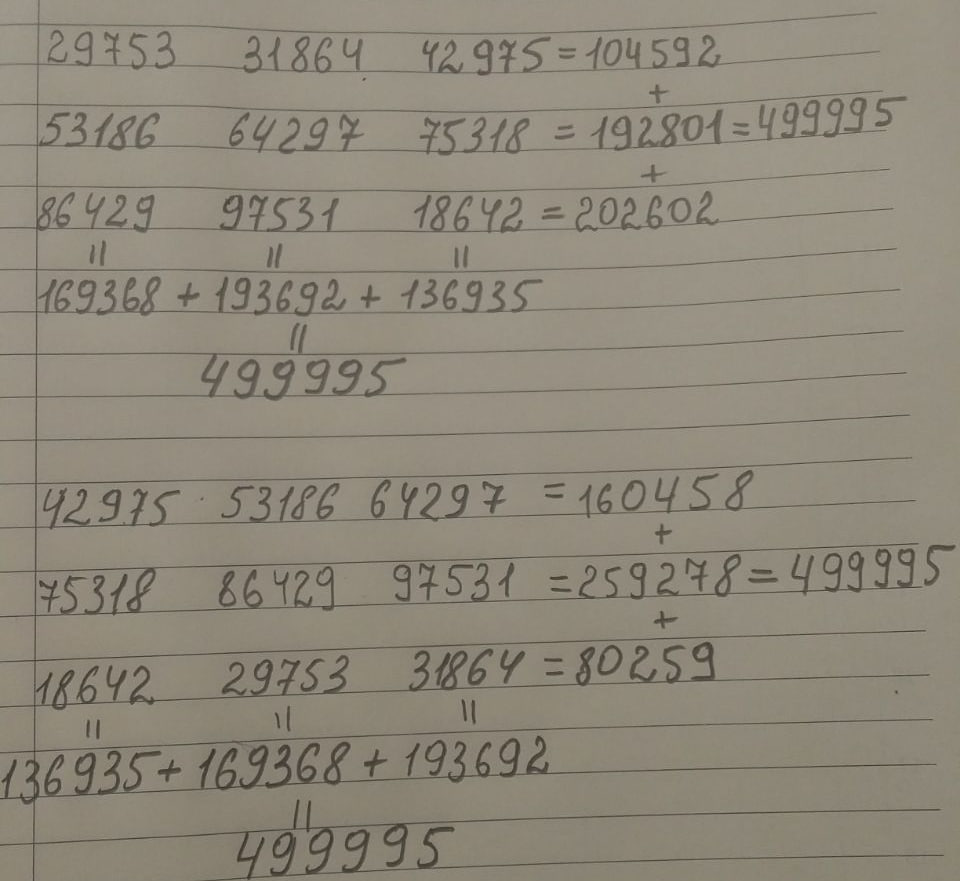 29753 31864 42975 = 104592
+
53186 64297 75318 = 192801 = 499995
+
86429 97531 18642 = 202602
= = =
169368 + 193692 + 136935
=
499995
42975 53186 64297 = 160458
+
75318 86429 97531 = 259278 = 499995
+
18642 29753 31864 = 80259
= = =
136935 + 169368 + 193692
=
499995